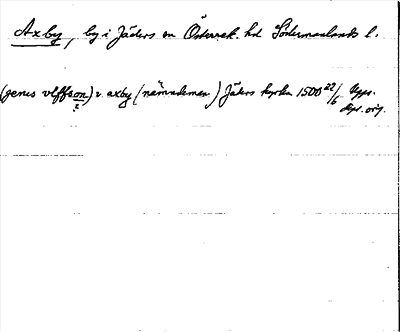 Axby, by i Jäders sn Österrek. hd Södermanlands l.
(jenis vlffson) i axby (nämndeman) Jäders kyrka 1500 22/6 Uppr.
dpr. orig.